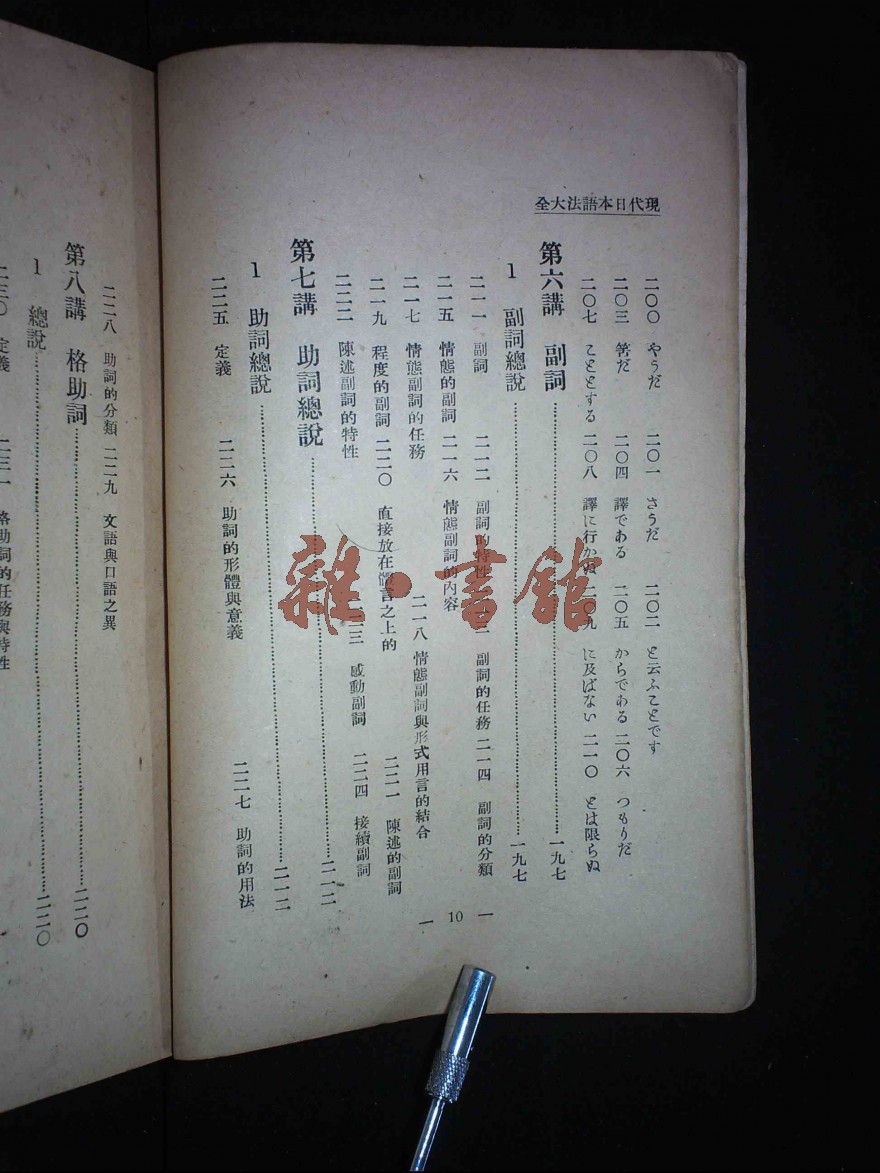 現代日本語法大全
二〇〇 やうだ 二〇一 さうだ 二〇二 と云ふことです
二〇三 筈だ 二〇四 譯である 二〇五 からである 二〇六 つもりだ
二〇七 こととする 二〇八 譯に行かぬ 二〇九 に及ばない 二一〇 とは限らぬ
第六講 副詞……一九七
1 副詞總說……一九七
二一一 副詞 二一二 副詞的特性 二一三 副詞的任務 二一四 副詞的分類
二一五 情態的副詞 二一六 情態副詞的內容
二一七 情態副詞的任務 二一八 情態副詞與形式用言的結合
二一九 程度的副詞 二二〇 直接放在體言之上的 二二一 陳述的副詞
二二二 陳述副詞的特性 二二三 感動副詞 二二四 接續副詞
第七講 助詞總說……二一二
1 助詞總說……二一二
二二五 定義 二二六 助詞的形體與意義 二二七 助詞的用法
— 10 —
二二八 助詞的分類 二二九 文語與口語之異
第八講 格助詞……二二〇
1 總說……二二〇
二三〇 定義 二三一 格助詞的任務與特性
雜·書館